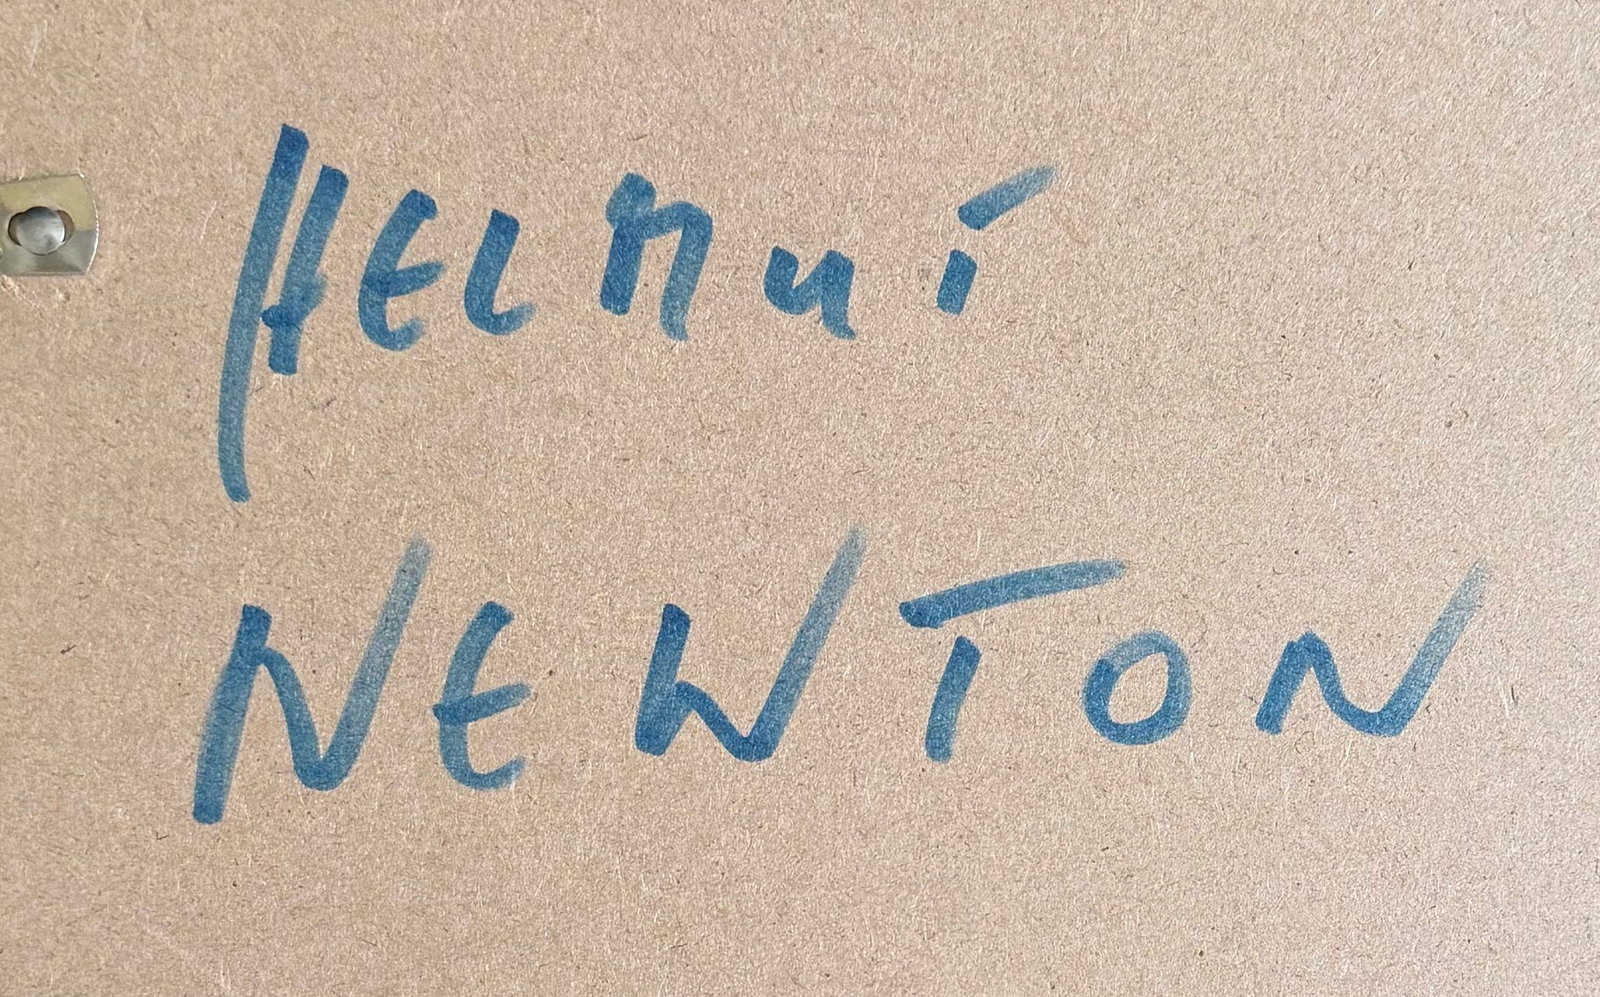 HELMUT
NEWTON